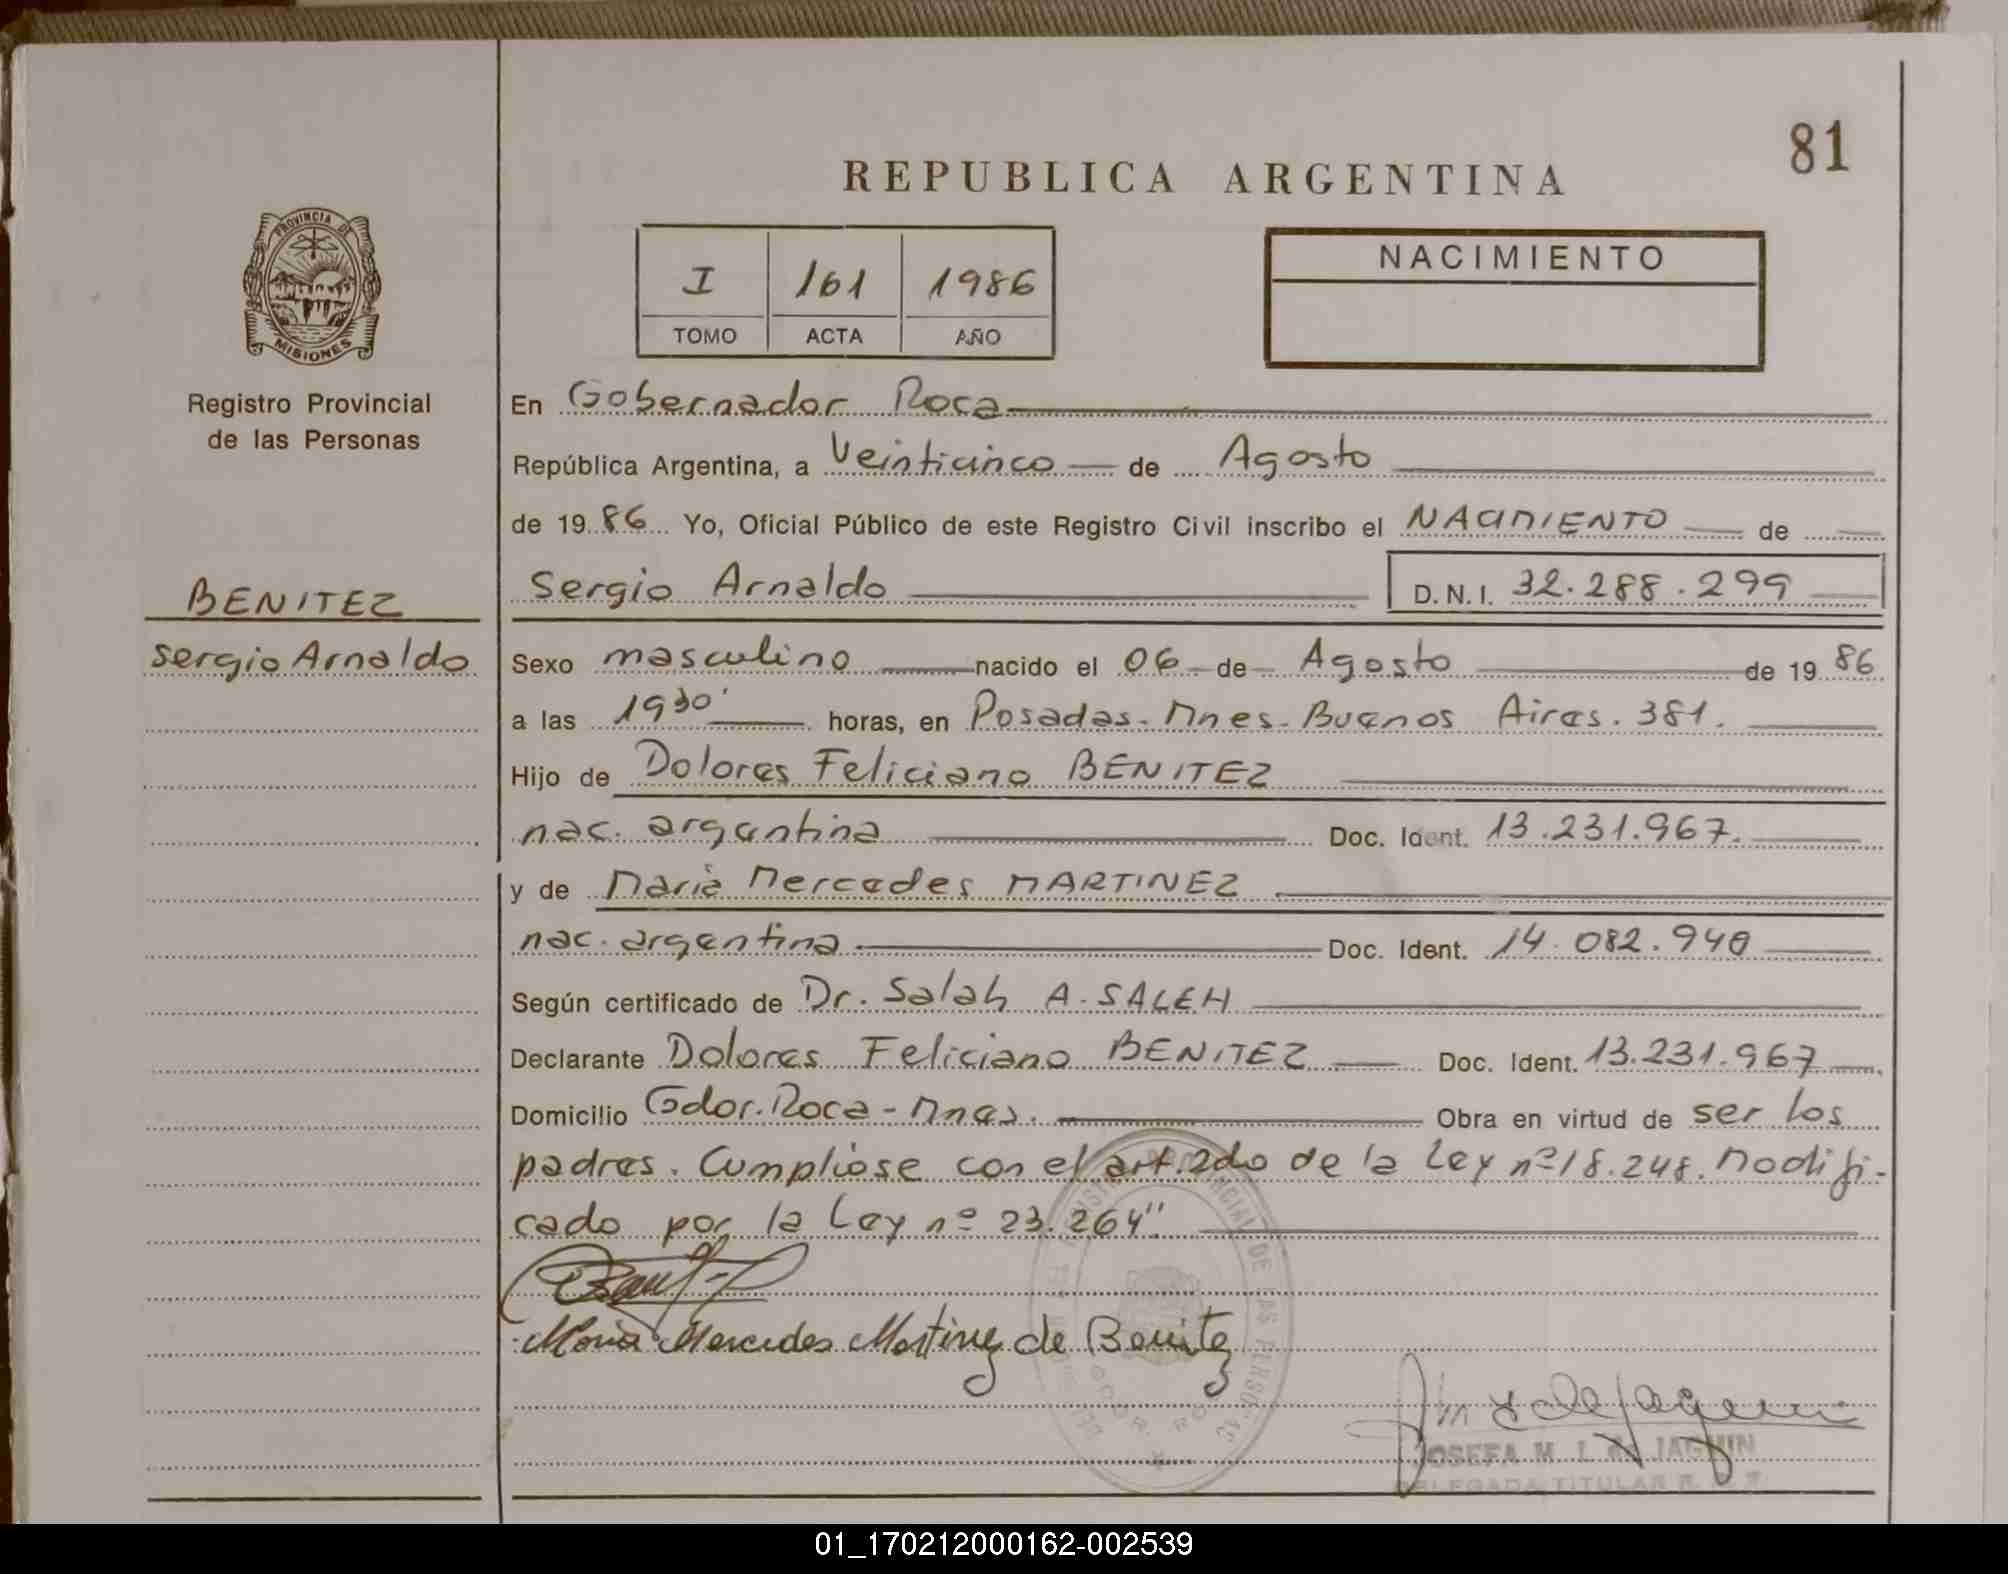 81
REPUBLICA ARGENTINA
PROVINCIA DE
MISIONES
Registro Provincial
de las Personas
BENITEZ
Sergio Arnaldo
I 161 1986
TOMO ACTA AÑO
NACIMIENTO
En Gobernador Roca
República Argentina, a Veinticinco de Agosto
de 1986 Yo, Oficial Público de este Registro Civil inscribo el NACIMIENTO de
Sergio Arnaldo D.N.I. 32.288.299
Sexo masculino nacido el 06 de Agosto de 1986
a las 1930' horas, en Posadas-Mnes-Buenos Aires.381.
Hijo de Dolores Feliciano BENITEZ
nac. argentina Doc. Ident. 13.231.967.
y de Maria Mercedes MARTINEZ
nac. argentina Doc. Ident. 14.082.940
Según certificado de Dr. Salah A. SALEH
Declarante Dolores Feliciano BENITEZ Doc. Ident. 13.231.967
Domicilio Gdor. Roca-Mnes. Obra en virtud de ser los
padres. Cumpliose con el art. 2do de la Ley nº 18.248. Modifi-
cado por la Ley nº 23.264"
Maria Mercedes Martinez de Benitez
JOSEFA M. I. de JAGMIN
DELEGADA TITULAR
01_170212000162-002539